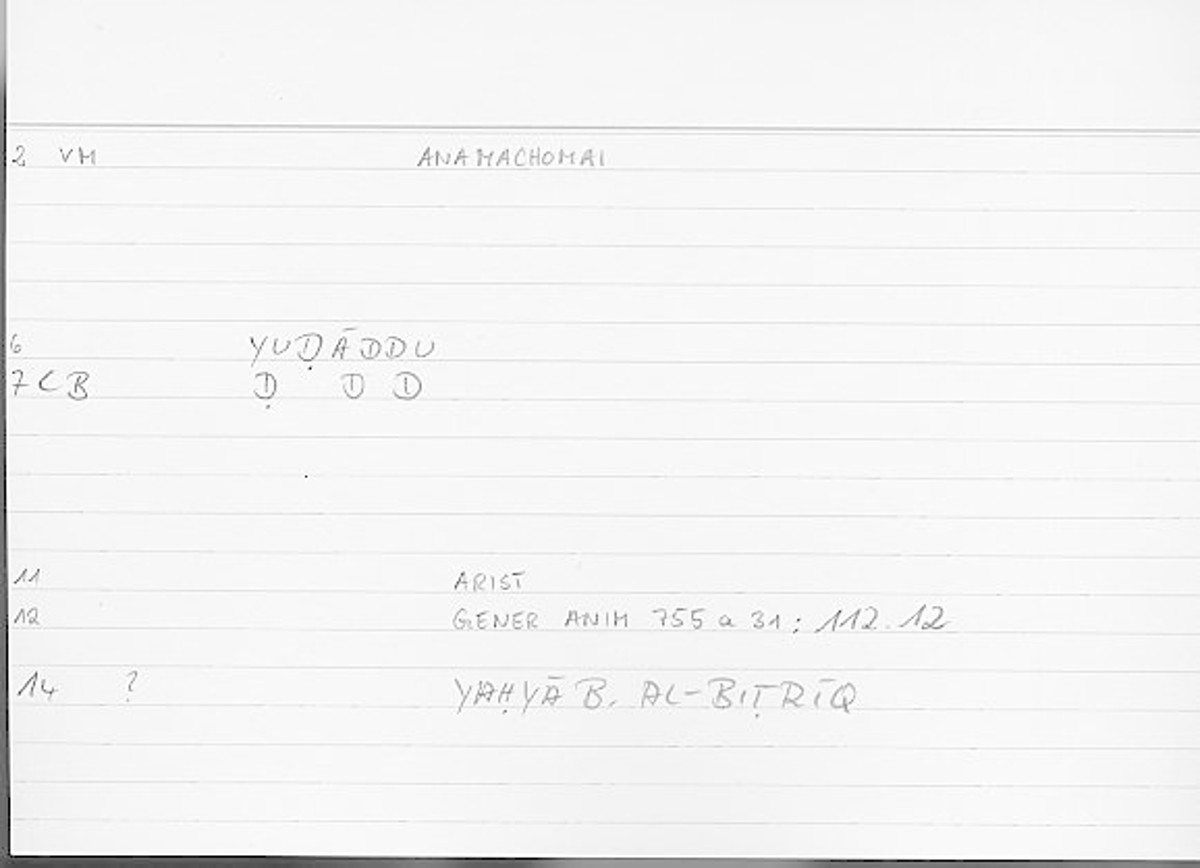 2 VM ANAMACHOMAI
6 YUḌĀDDU
7 C B Ḍ D D
11 ARIST
12 GENER ANIM 755 a 31 : 112.12
14 ? YAḤYĀ B. AL-BIṬRĪQ